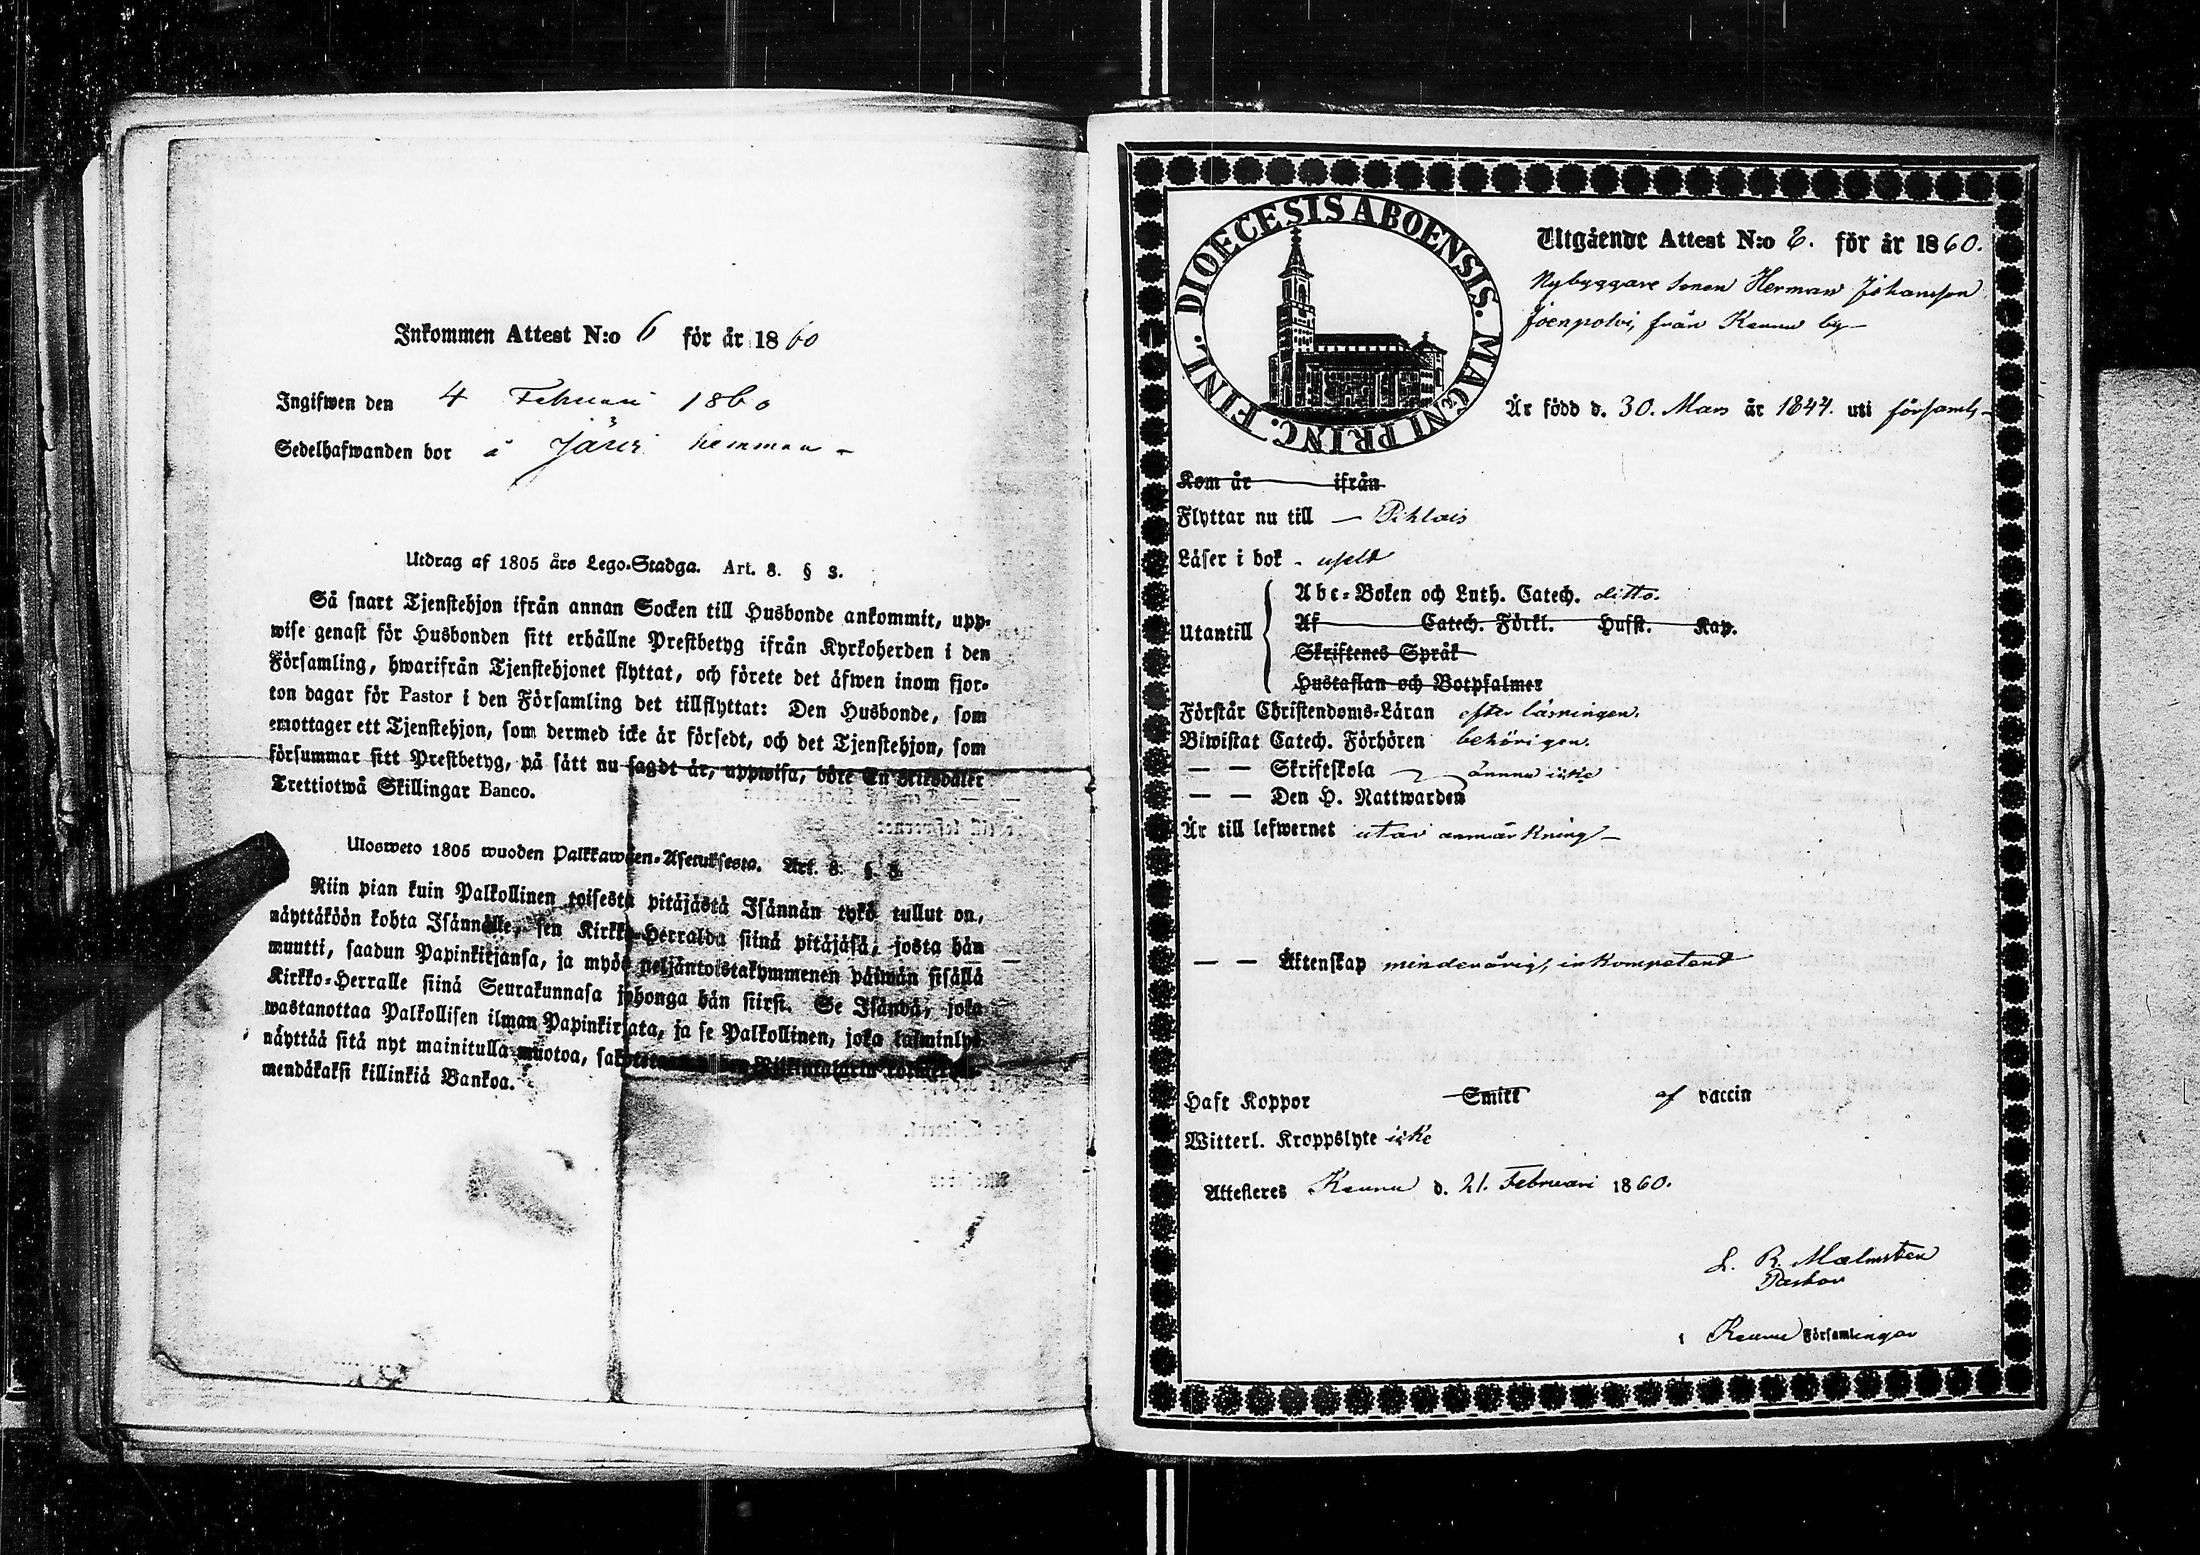 Inkommen Attest N:o 6 för år 1860
Ingifwen den 4 Februari 1860
Sedelhafwanden bor å Järvi hemman –
Utdrag af 1805 års Lego-Stadga. Art. 8. § 3.
Så snart Tjenstehjon ifrån annan Socken till Husbonde ankommit, upp-
wise genast för Husbonden sitt erhållne Prestbetyg ifrån Kyrkoherden i den
Församling, hwarifrån Tjenstehjonet flyttat, och förete det äfwen inom fjor-
ton dagar för Pastor i den Församling det tillflyttat: Den Husbonde, som
emottager ett Tjenstehjon, som dermed icke är försedt, och det Tjenstehjon, som
försummar sitt Prestbetyg, på sätt nu sagdt är, uppwisa, böte En Riksdaler
Trettiotwå Skillingar Banco.
Ulosweto 1805 wuoden Palkkawäen-Asetuksesta. Art. 8. §. 3.
Niin pian kuin Palkollinen toisesta pitäjästä Isännän tykö tullut on,
näyttäköön kohta Isännälle, sen Kirkko-Herralda siinä pitäjäsä, josta hän
muutti, saadun Papinkirjansa, ja myös neljäntoistakymmenen päiwän sisällä
Kirkko-Herralle siinä Seurakunnasa johonga hän siirsi. Se Isändä, joka
wastanottaa Palkollisen ilman Papinkirjata, ja se Palkollinen, joka laiminlyö
näyttää sitä nyt mainitulla muotoa,
mendäkaksi killinkiä Bankoa.
DIOECESIS ABOENSIS. MAGNI PRINC. FINL.
Utgående Attest N:o 8. för år 1860.
Nybyggare sonen Herman Johansson
Joenpolvi, från Keuru by –
Är född d. 30. Mars år 1844. uti församl –
Kom år ifrån
Flyttar nu till – Pihlais
Läser i bok - uselt
Utantill
Abc-Boken och Luth. Catech. ditto.
Af Catech. Förkl. Husst. Kap.
Skriftenes Språk
Hustaflan och Botpsalmer
Förstår Christendoms-Läran efter läsningen.
Biwistat Catech. Förhören behörigen.
— — Skriftskola ännu icke
— — Den H. Nattwarden
Är till lefwernet utan anmärkning –
— — Äktenskap minderårig, inkompetent
Haft Koppor Smitt af vaccin
Witterl. Kroppslyte icke
Attesteres Keuru d. 21. Februari 1860.
L. R. Malmsten
Pastor
i Keuru Församlingar